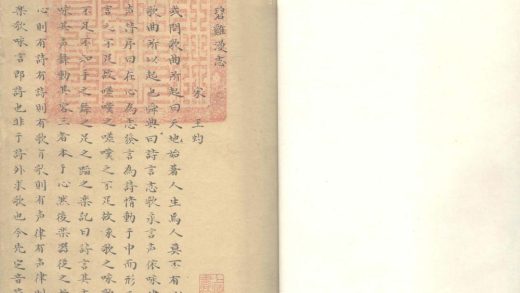 碧雞漫志
宋 王灼
或問歌曲所起曰天地始著人生焉人莫不有
歌曲所以起也舜典曰詩言志歌永言声依永
声詩序曰在心為志發言為詩情動于中而形
言之不足故嗟嘆之嗟嘆之不足故永歌之咏歌
不足不知手之舞之足之蹈之樂記曰詩言其
咏其声舞動其容三者本于心然後樂器從之
心則有詩有詩則有歌有歌則有声律有声律則
樂歌咏言即詩也非于詩外求歌也今先定音